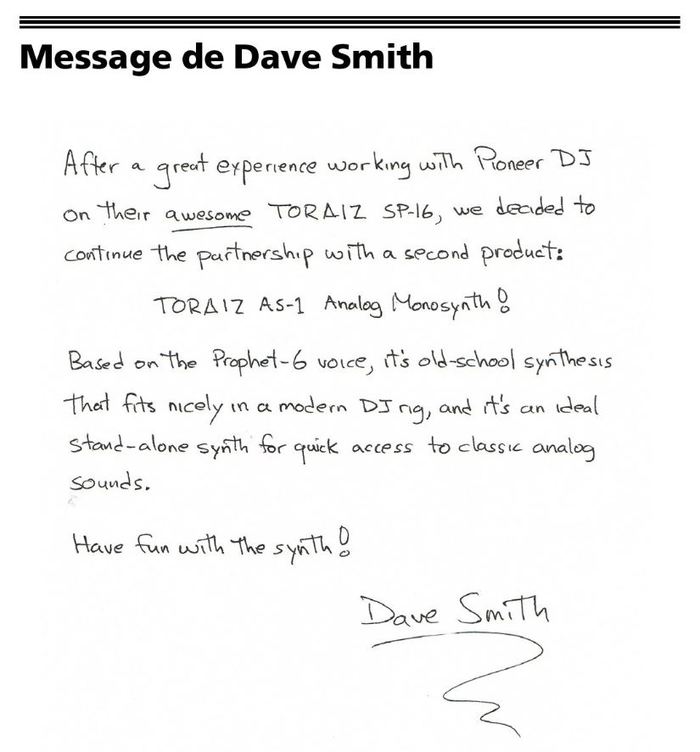 Message de Dave Smith
After a great experience working with Pioneer DJ
on their awesome TORAIZ SP-16, we decided to
continue the partnership with a second product:
TORAIZ AS-1 Analog Monosynth!
Based on the Prophet-6 voice, it's old-school synthesis
that fits nicely in a modern DJ rig, and it's an ideal
stand-alone synth for quick access to classic analog
sounds.
Have fun with the synth!
Dave Smith